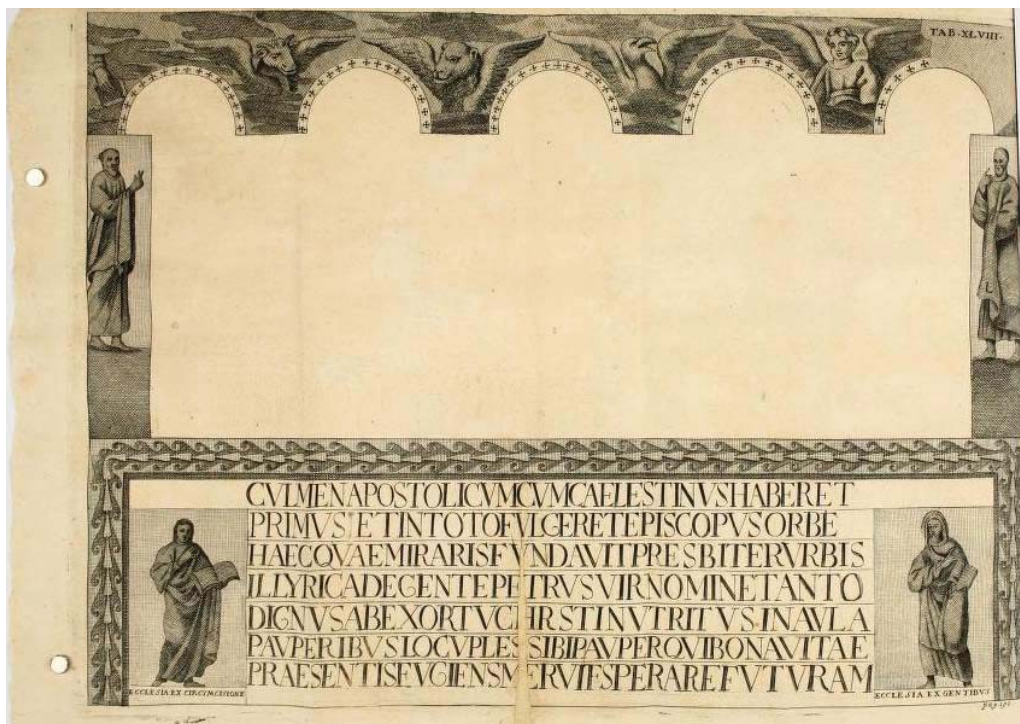 TAB·XLVIII·
L
CVLMENAPOSTOLICVMCVMCAELESTINVSHABERET
PRIMVS ETINTOTOFVLGERETEPISCOPVSORBE
HAECQVAEMIRARISFVNDAVITPRESBITERVRBIS
ILLYRICADEGENTEPETRVSVIRNOMINETANTO
DIGNVSABEXORTVCHRSTINVTRITVS·INAVLA
PAVPERIBVSLOCVPLESSIBIPAVPERQVIBONAVITAE
PRAESENTISFVGIENSMERVITSPERAREFVTVRAM
ECCLESIA EX CIRCVMCISIONE
ECCLESIA EX GENTIBVS